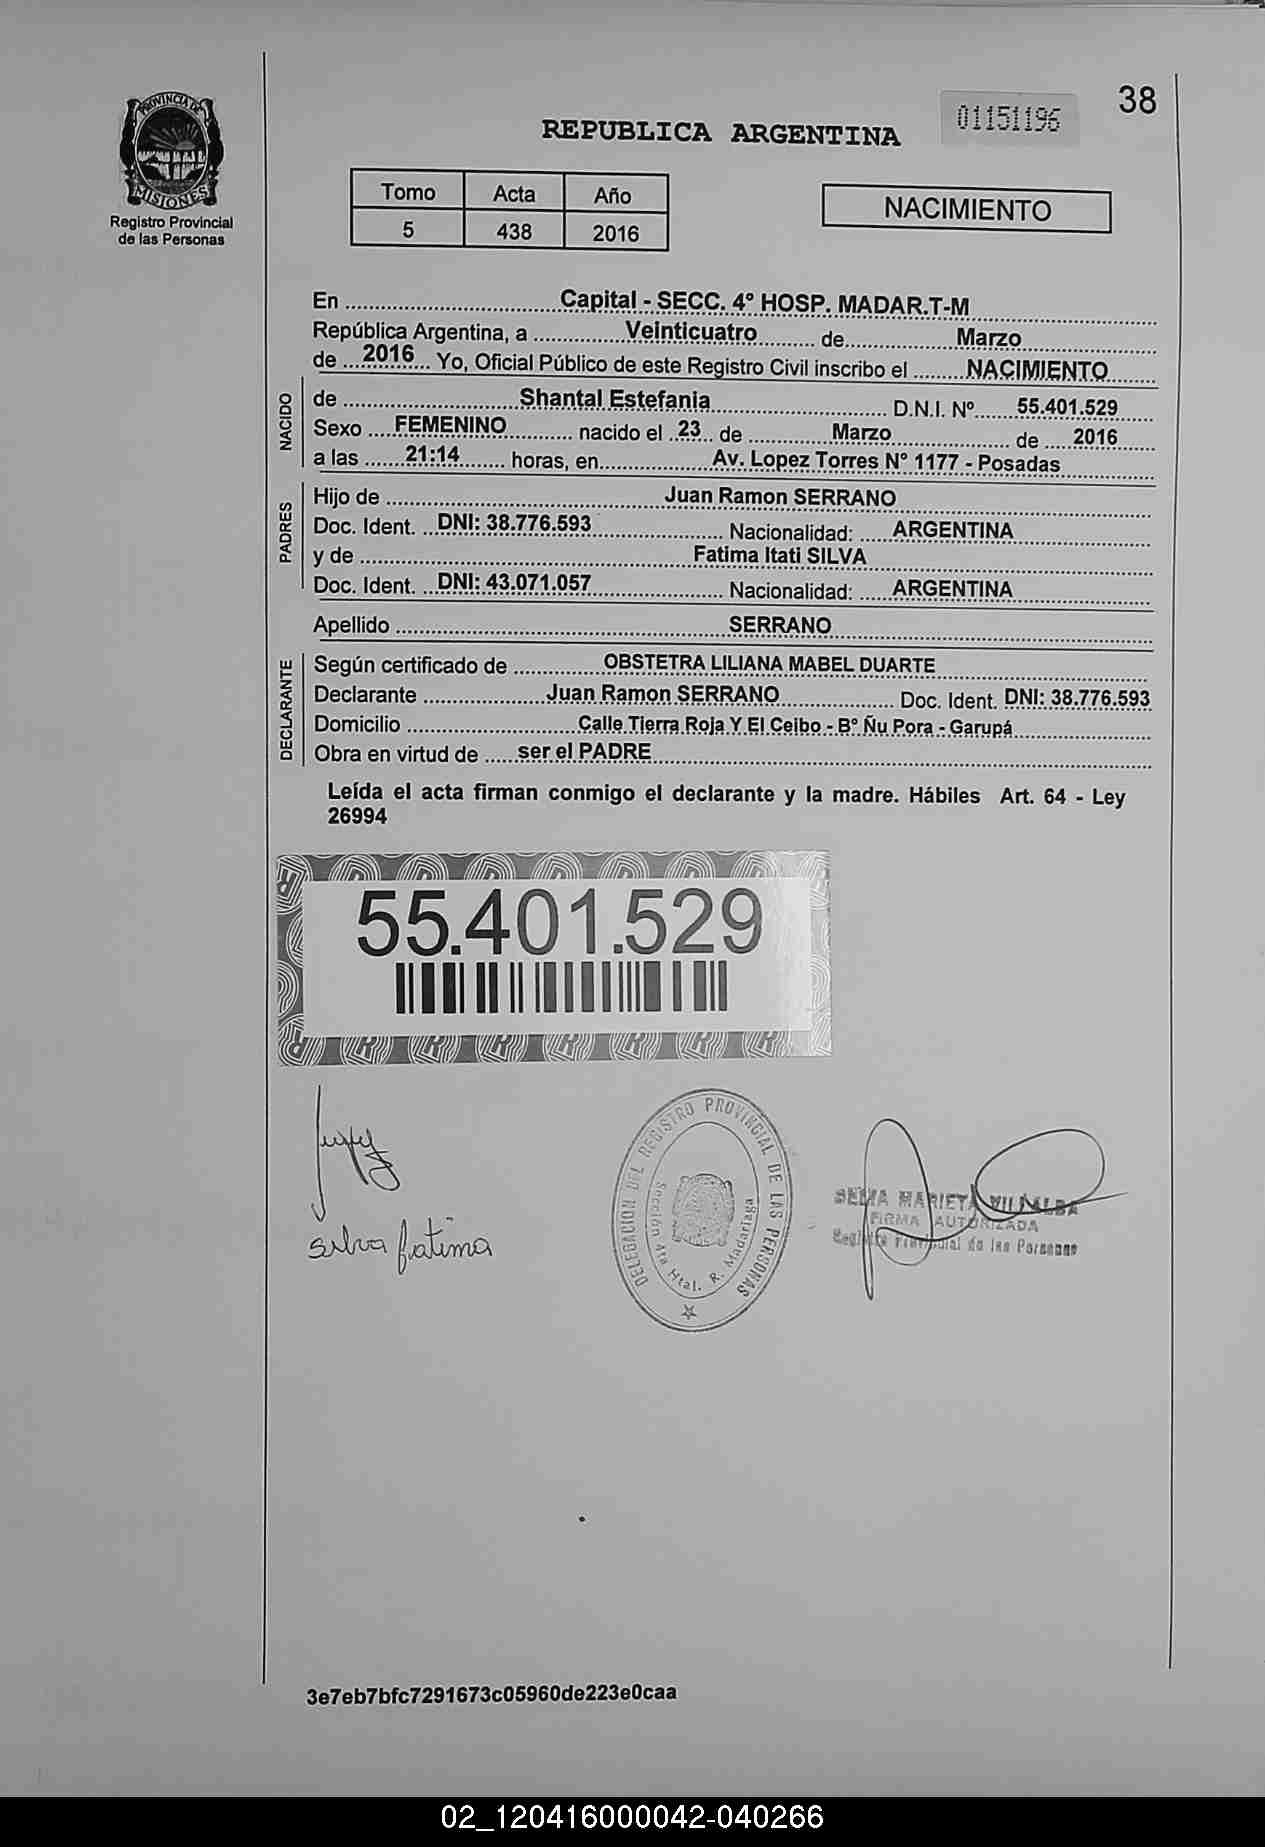 38
01151196
REPUBLICA ARGENTINA
PROVINCIA DE
MISIONES
Registro Provincial
de las Personas
Tomo Acta Año
5 438 2016
NACIMIENTO
En Capital - SECC. 4° HOSP. MADAR.T-M
República Argentina, a Veinticuatro de Marzo
de 2016 Yo, Oficial Público de este Registro Civil inscribo el NACIMIENTO
NACIDO
de Shantal Estefania D.N.I. Nº 55.401.529
Sexo FEMENINO nacido el 23 de Marzo de 2016
a las 21:14 horas, en Av. Lopez Torres N° 1177 - Posadas
PADRES
Hijo de Juan Ramon SERRANO
Doc. Ident. DNI: 38.776.593 Nacionalidad: ARGENTINA
y de Fatima Itati SILVA
Doc. Ident. DNI: 43.071.057 Nacionalidad: ARGENTINA
Apellido SERRANO
DECLARANTE
Según certificado de OBSTETRA LILIANA MABEL DUARTE
Declarante Juan Ramon SERRANO Doc. Ident. DNI: 38.776.593
Domicilio Calle Tierra Roja Y El Ceibo - B° Ñu Pora - Garupá
Obra en virtud de ser el PADRE
Leída el acta firman conmigo el declarante y la madre. Hábiles Art. 64 - Ley
26994
55.401.529
silva fatima
DELEGACION DEL REGISTRO PROVINCIAL DE LAS PERSONAS
Sección 4ta Htal. R. Madariaga
SELVA MARIETA VILLALBA
FIRMA AUTORIZADA
Registro Provincial de las Personas
3e7eb7bfc7291673c05960de223e0caa
02_120416000042-040266